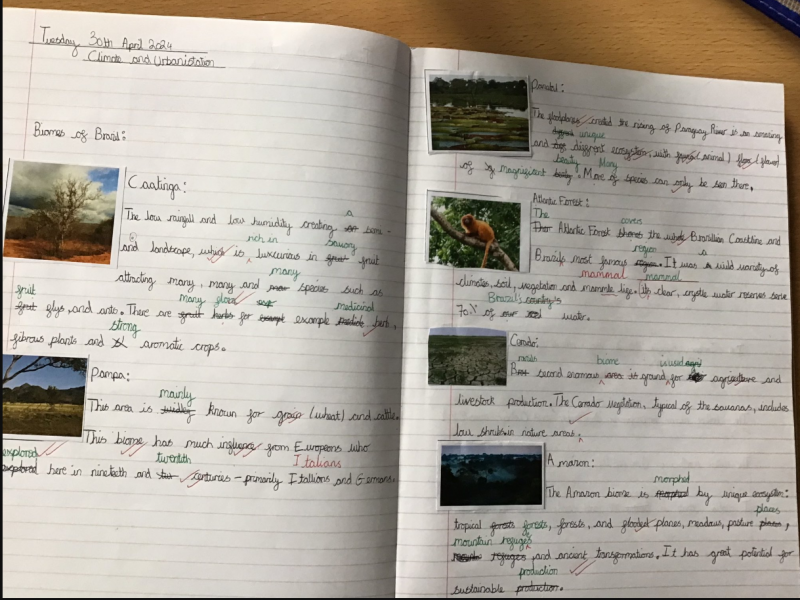 Tuesday 30th April 2024
Climate and Urbanistation
Biomes of Brazil:
Caatinga:
a
The low raingall and low humidity creating semi-
arid landscape, which is luxcurious in fruit
rich in savoury
many
attracting many, many and species such as
fruit many glora medicinal
glys, and ants. There are herbs for example herb,
strong
fibrous plants and aromatic crops.
Pampa:
mainly
This area is known for grain (wheat) and cattle.
This biome has much inglience from Europeans who
explored twentith Italians
explored here in nineteeth and centuries - primarily Itallions and Germans.
Pantanal:
The gloodplanes created the rising of Paraguay River is an amazing
unique
and different ecosystem, with (animal) glora (flavor)
beauty Many
of magnificent . More of species can only be seen there.
Atlantic Forest:
The covers
Atlantic Forest the whole Brazillian Coastline and
region a
Brazil's most famous region. It was wild variety of
mammal mammal
climates, soil, vegetation and mammle lige. Its clear, crystic water reserves serve
Brazil's country's
70% of our water.
Cerrado:
biome is used
second enormous area is ground for agriculture and
livestock production. The Cerrado vegitation, typical of the savanas, includes
low shrubs in nature areas.
Amazon:
morphed
The Amazon biome is morphed by unique ecosystem:
places
tropical forests forests, forests, and glooded planes, meadows, pasture places,
mountain refuges
refuges and ancient transformations. It has great potential for
production
sustainable production.